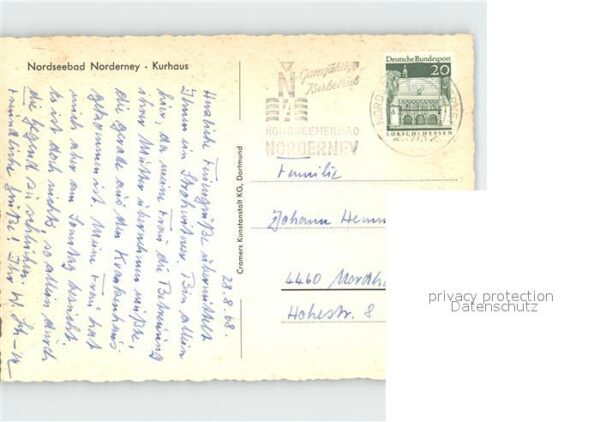 Nordseebad Norderney - Kurhaus
28.8.68.
Herzliche Feriengrüße übermittelt
Ihnen ein Strohwitwer. Bin allein
hier, da meine Frau die Betreuung
ihrer Mutter übernehmen mußte,
die gerade aus dem Krankenhaus
gekommen ist. Meine Frau hat
mich aber am Sonntag besucht.
Es ist doch nichts, so allein durch
die Gegend zu schleichen.
Freundliche Grüße Ihr
Cramers Kunstanstalt KG, Dortmund
Ganzjähriger
Kurbetrieb
N
NORDSEEHEILBAD
NORDERNEY
Deutsche Bundespost
20
LORSCH/HESSEN
Familie
Johann
4460 Nordh
Hohestr. 8
privacy protection
Datenschutz